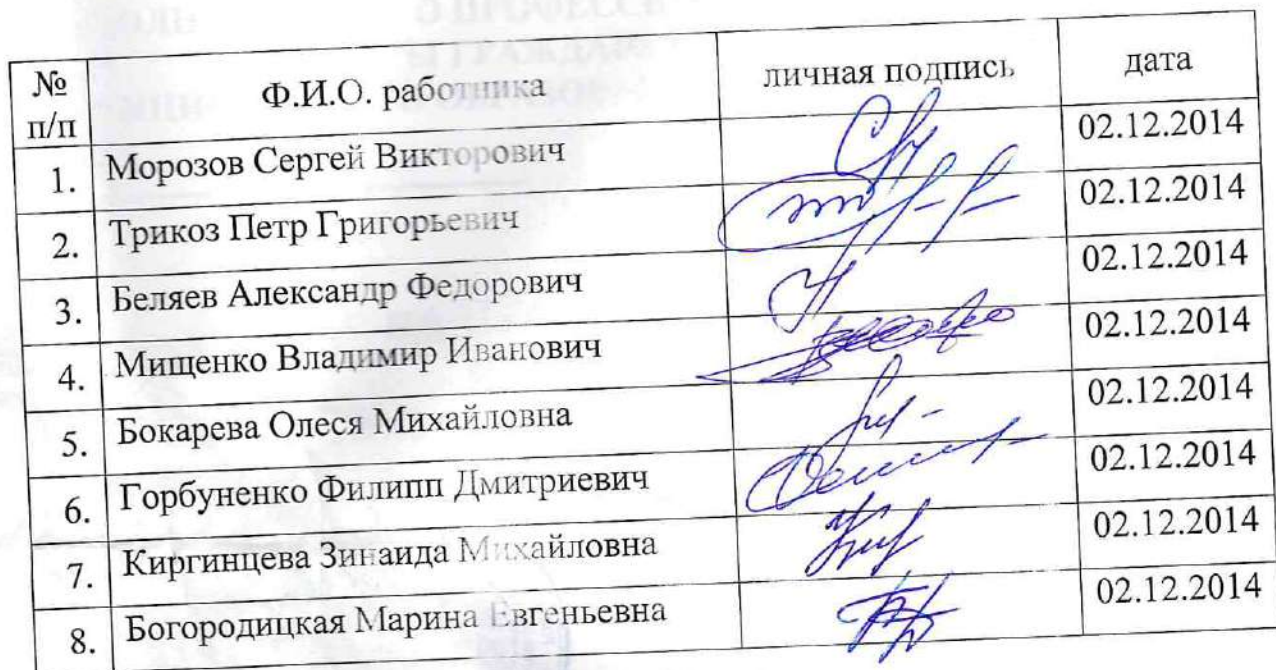 № п/п Ф.И.О. работника личная подпись дата
1. Морозов Сергей Викторович 02.12.2014
2. Трикоз Петр Григорьевич 02.12.2014
3. Беляев Александр Федорович 02.12.2014
4. Мищенко Владимир Иванович 02.12.2014
5. Бокарева Олеся Михайловна 02.12.2014
6. Горбуненко Филипп Дмитриевич 02.12.2014
7. Киргинцева Зинаида Михайловна 02.12.2014
8. Богородицкая Марина Евгеньевна 02.12.2014